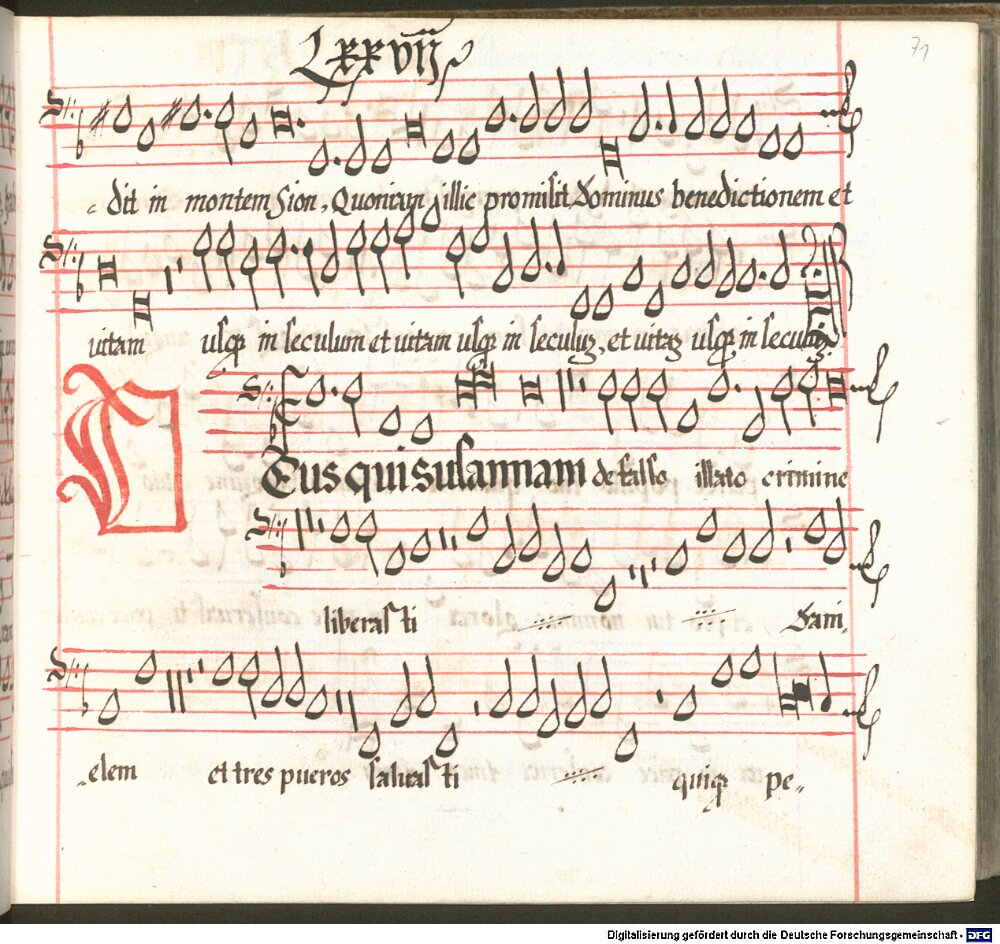 Lxxvij
71
dit in montem Sion, Quoniam illic promisit Dominus benedictionem et
vitam usq in seculum et vitam usq in seculuʒ, et vitaʒ usq in seculuʒ
Eus qui susannam de falso illato crimine
liberasti Dani-
elem et tres pueros salvasti quiq pe-
Digitalisierung gefördert durch die Deutsche Forschungsgemeinschaft - DFG